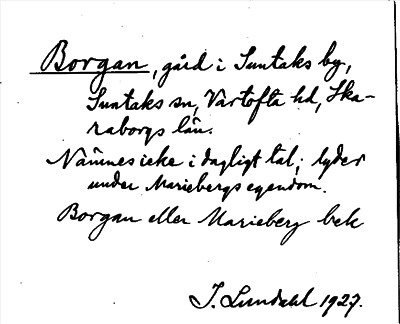 Borgan, gård i Suntaks by,
Suntaks sn, Vartofta hd, Ska-
raborgs län.
Nämnes icke i dagligt tal; lyder
under Mariebergs egendom.
Borgan eller Marieberg bek
J. Lundahl 1927.